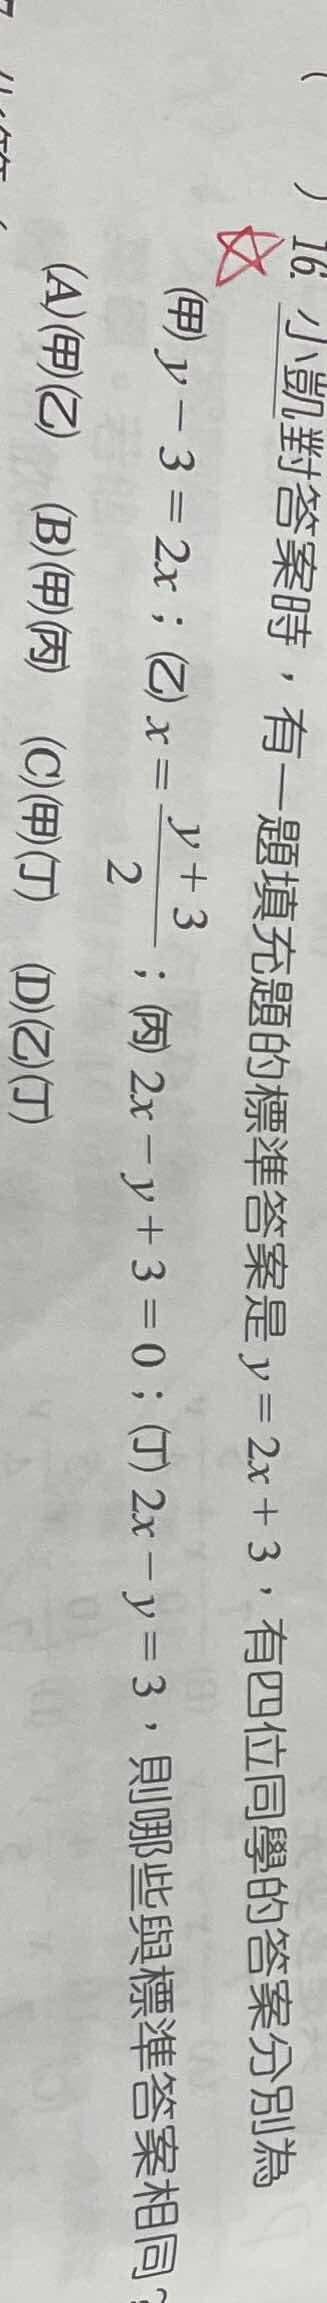 (　　) 16. 小凱對答案時，有一題填充題的標準答案是 y = 2x + 3，有四位同學的答案分別為
(甲) y − 3 = 2x；(乙) x = \frac{y + 3}{2}；(丙) 2x − y + 3 = 0；(丁) 2x − y = 3，則哪些與標準答案相同？
(A)(甲)(乙)　(B)(甲)(丙)　(C)(甲)(丁)　(D)(乙)(丁)